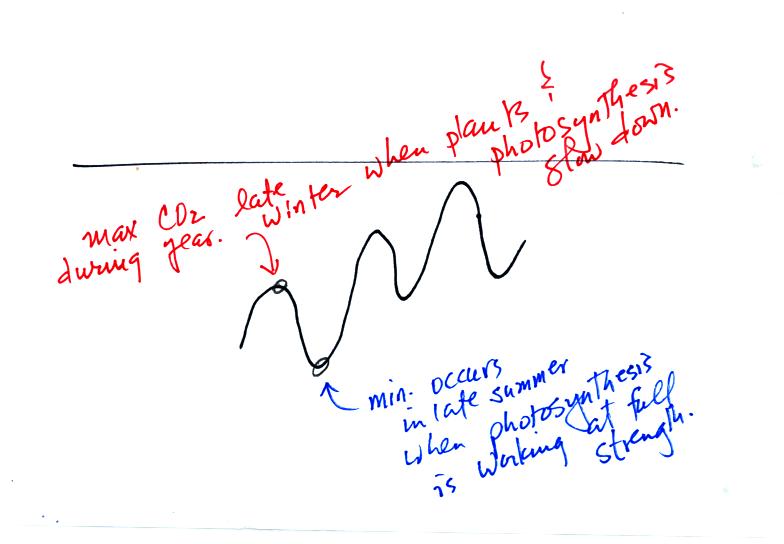 max CO2 late winter when plants &
during year. photosynthesis
slow down.
min. occurs
in late summer
when photosynthesis
is working at full
strength.